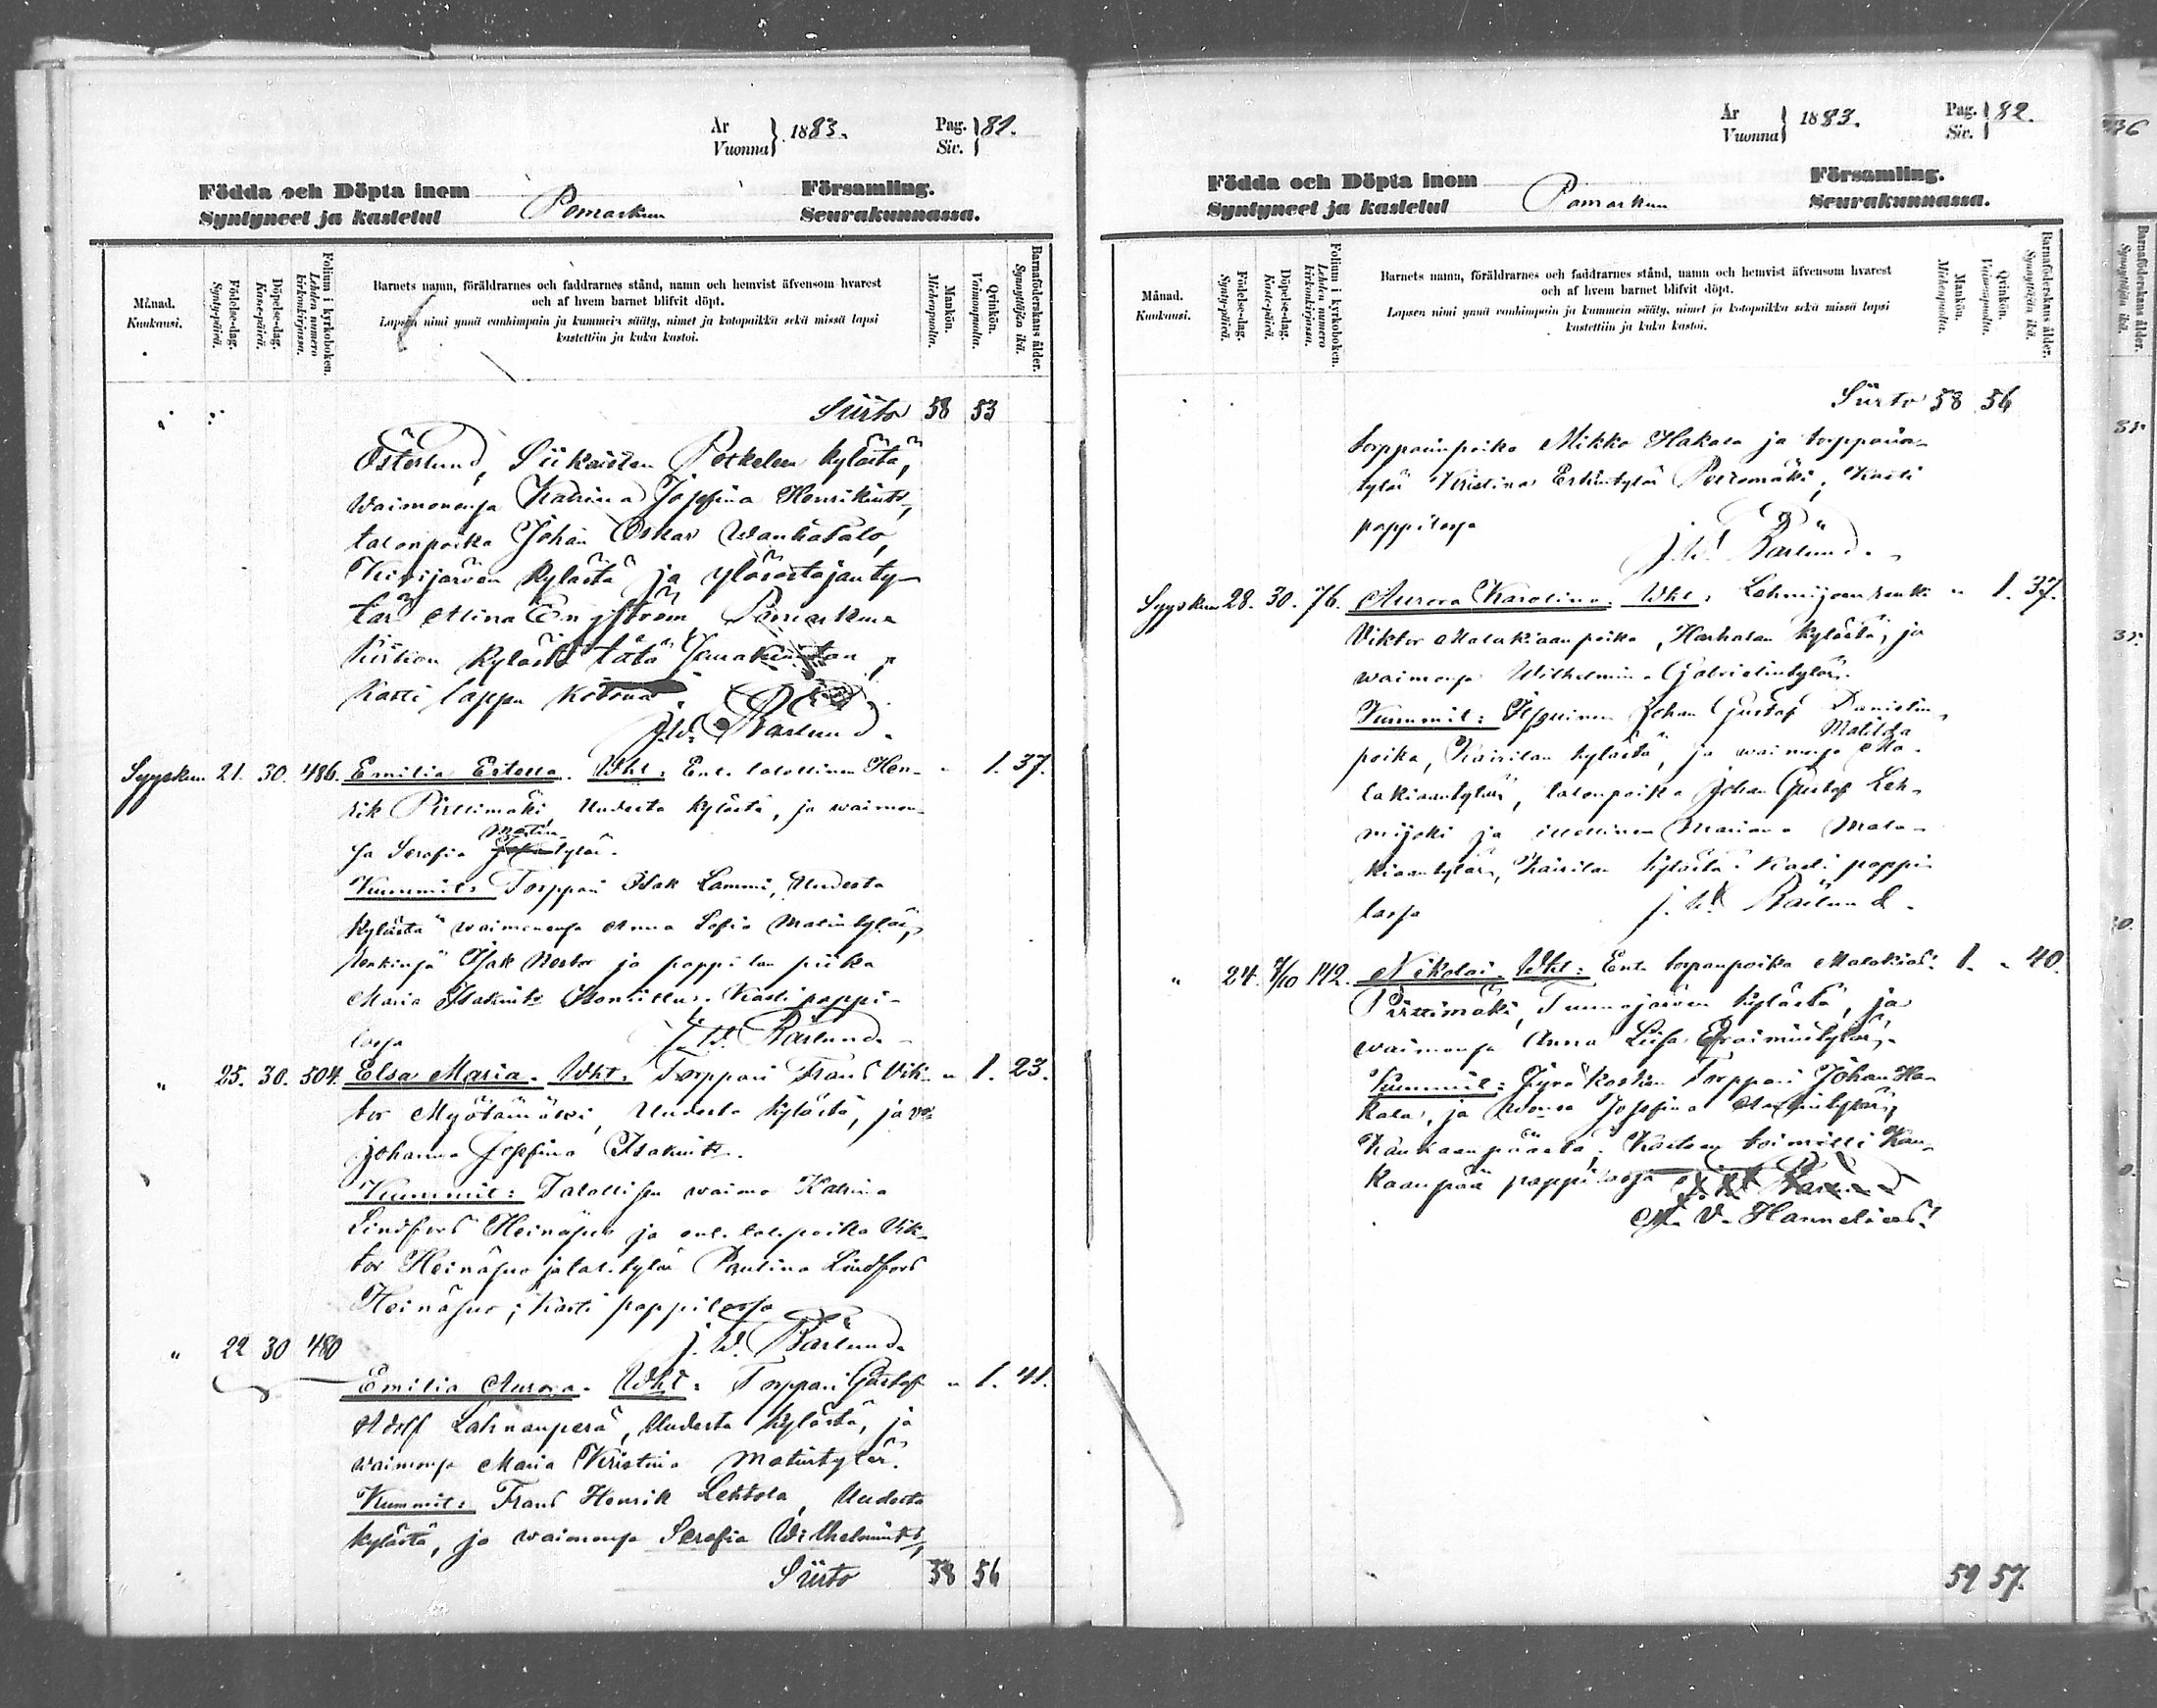 År
Vuonna } 1883.
Pag.
Siv. } 81.
Födda och Döpta inom
Syntyneet ja kastetut
Pomarkun
Församling.
Seurakunnassa.
Månad.
Kuukausi.
Födelse-dag.
Synty-päivä.
Döpelse-dag.
Kaste-päivä.
Folium i kyrkoboken.
Lehden numero
kirkonkirjassa.
Barnets namn, föräldrarnes och faddrarnes stånd, namn och hemvist äfvensom hvarest
och af hvem barnet blifvit döpt.
Lapsen nimi ynnä vanhimpain ja kummein sääty, nimet ja kotopaikka sekä missä lapsi
kastettiin ja kuka kastoi.
Mankön.
Miehenpuolia.
Qvinkön.
Vaimonpuolia.
Barnaföderskans ålder.
Synnyttäjän ikä.
Siirto 58 53
Österlund, Siikaisten kylästä,
waimonensa Katrina Josefina Henrikint.,
talonpoika Johan Oskar Wanhatalo,
kylästä ja
tär Mina Engström, Pomarkun
kylästä tätä Seurakuntaa;
Kasti lapsen kotona.
J. W. Barlund.
Syyskuu 21. 30. 486. Emilia Esterra. Wht: Ent. talollinen Hen- " 1. 37.
rik Pirttimäki, Uudesta kylästä, ja waimon-
Matin
sa Serafia tytär.
Kummit: Torppari Isak Lammi, Uudesta
kylästä waimonensa Anna Sofia Matintytär,
Isak Nestor ja pappilan piika
Maria Isakint. Kasti pappi-
lassa J. W. Barlund.
" 25. 30. 504. Elsa Maria. Wht: Torppari Frans Vik- " 1. 23.
tor Myötämäki, Uudesta kylästä, ja wo
Johanna Josefina Isakint.
Kummit: Talollisen waimo Katrina
Lindfors Heinäsuo ja ent. tal. poika Vik-
tor Heinäsuo ja tal. tytär Paulina Lindfors
Heinäsuo; Kasti pappilassa
J. W. Barlund.
" 22 30 480
Emilia Aurora. Wht: Torppari Gustaf " 1. 41.
Adolf Lahnanperä, Uudesta kylästä, ja
waimonsa Maria Kristina Matintytär.
Kummit: Frans Henrik Lehtola, Uudesta
kylästä, ja waimonsa Serafia Wilhelmint.,
Siirto 58 56
År
Vuonna } 1883.
Pag.
Siv. } 82.
Födda och Döpta inom
Syntyneet ja kastetut
Pomarkun
Församling.
Seurakunnassa.
Månad.
Kuukausi.
Födelse-dag.
Synty-päivä.
Döpelse-dag.
Kaste-päivä.
Folium i kyrkoboken.
Lehden numero
kirkonkirjassa.
Barnets namn, föräldrarnes och faddrarnes stånd, namn och hemvist äfvensom hvarest
och af hvem barnet blifvit döpt.
Lapsen nimi ynnä vanhimpain ja kummein sääty, nimet ja kotopaikka sekä missä lapsi
kastettiin ja kuka kastoi.
Mankön.
Miehenpuolia.
Qvinkön.
Vaimonpuolia.
Barnaföderskans ålder.
Synnyttäjän ikä.
Siirto 58 56
torpparinpoika Mikko Hakala ja torpparin-
tytär Kristina Erkintytär; Kasti
pappilassa
J. W. Barlund.
Syyskuu 28. 30. 76. Aurora Karolina. Wht: Lehmijoen renki " 1. 37.
Viktor Malakiaanpoika, Harhalan kylästä, ja
waimonsa Wilhelmina Gabrielintytär.
Kummit: Itsellinen Johan Gustaf Danielin-
Matilda
poika, Kairilan kylästä, ja waimonsa Ma-
lakiaantytär, talonpoika Johan Gustaf Leh-
mijoki ja itsellinen Mariana Mala-
kiaantytär, Kairilan kylästä. Kasti pappi-
lassa J. W. Barlund.
" 24. 7/10 142. Nikolai. Wht: Ent. torpanpoika Malakias 1. " 40.
Pirttimäki, kylästä, ja
waimonsa Anna Liisa Efraimintytär.
Kummit: Jyräkosken Torppari Johan Ha-
kala, ja Josefina
Kankaanpäästä; Kasteen toimitti Kan-
kaanpää pappilassa
Hannelius.
59 57.
Barnaföderskans ålder.
Synnyttäjän ikä.